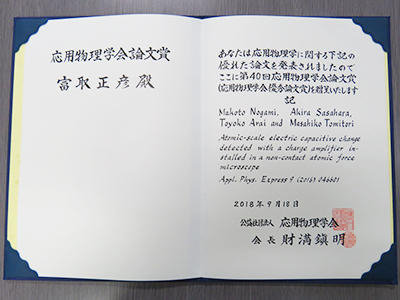 応用物理学会論文賞
富取正彦殿
あなたは応用物理学に関する下記の
優れた論文を発表されましたので
ここに第40回応用物理学会論文賞
(応用物理学会優秀論文賞)を贈呈いたします
記
Makoto Nogami, Akira Sasahara,
Toyoko Arai and Masahiko Tomitori
Atomic-scale electric capacitive change
detected with a charge amplifier in-
stalled in a non-contact atomic force
microscope
Appl. Phys. Express 9 (2016) 046601
2018年9月18日
公益社団法人 応用物理学会
会長 財満鎭明